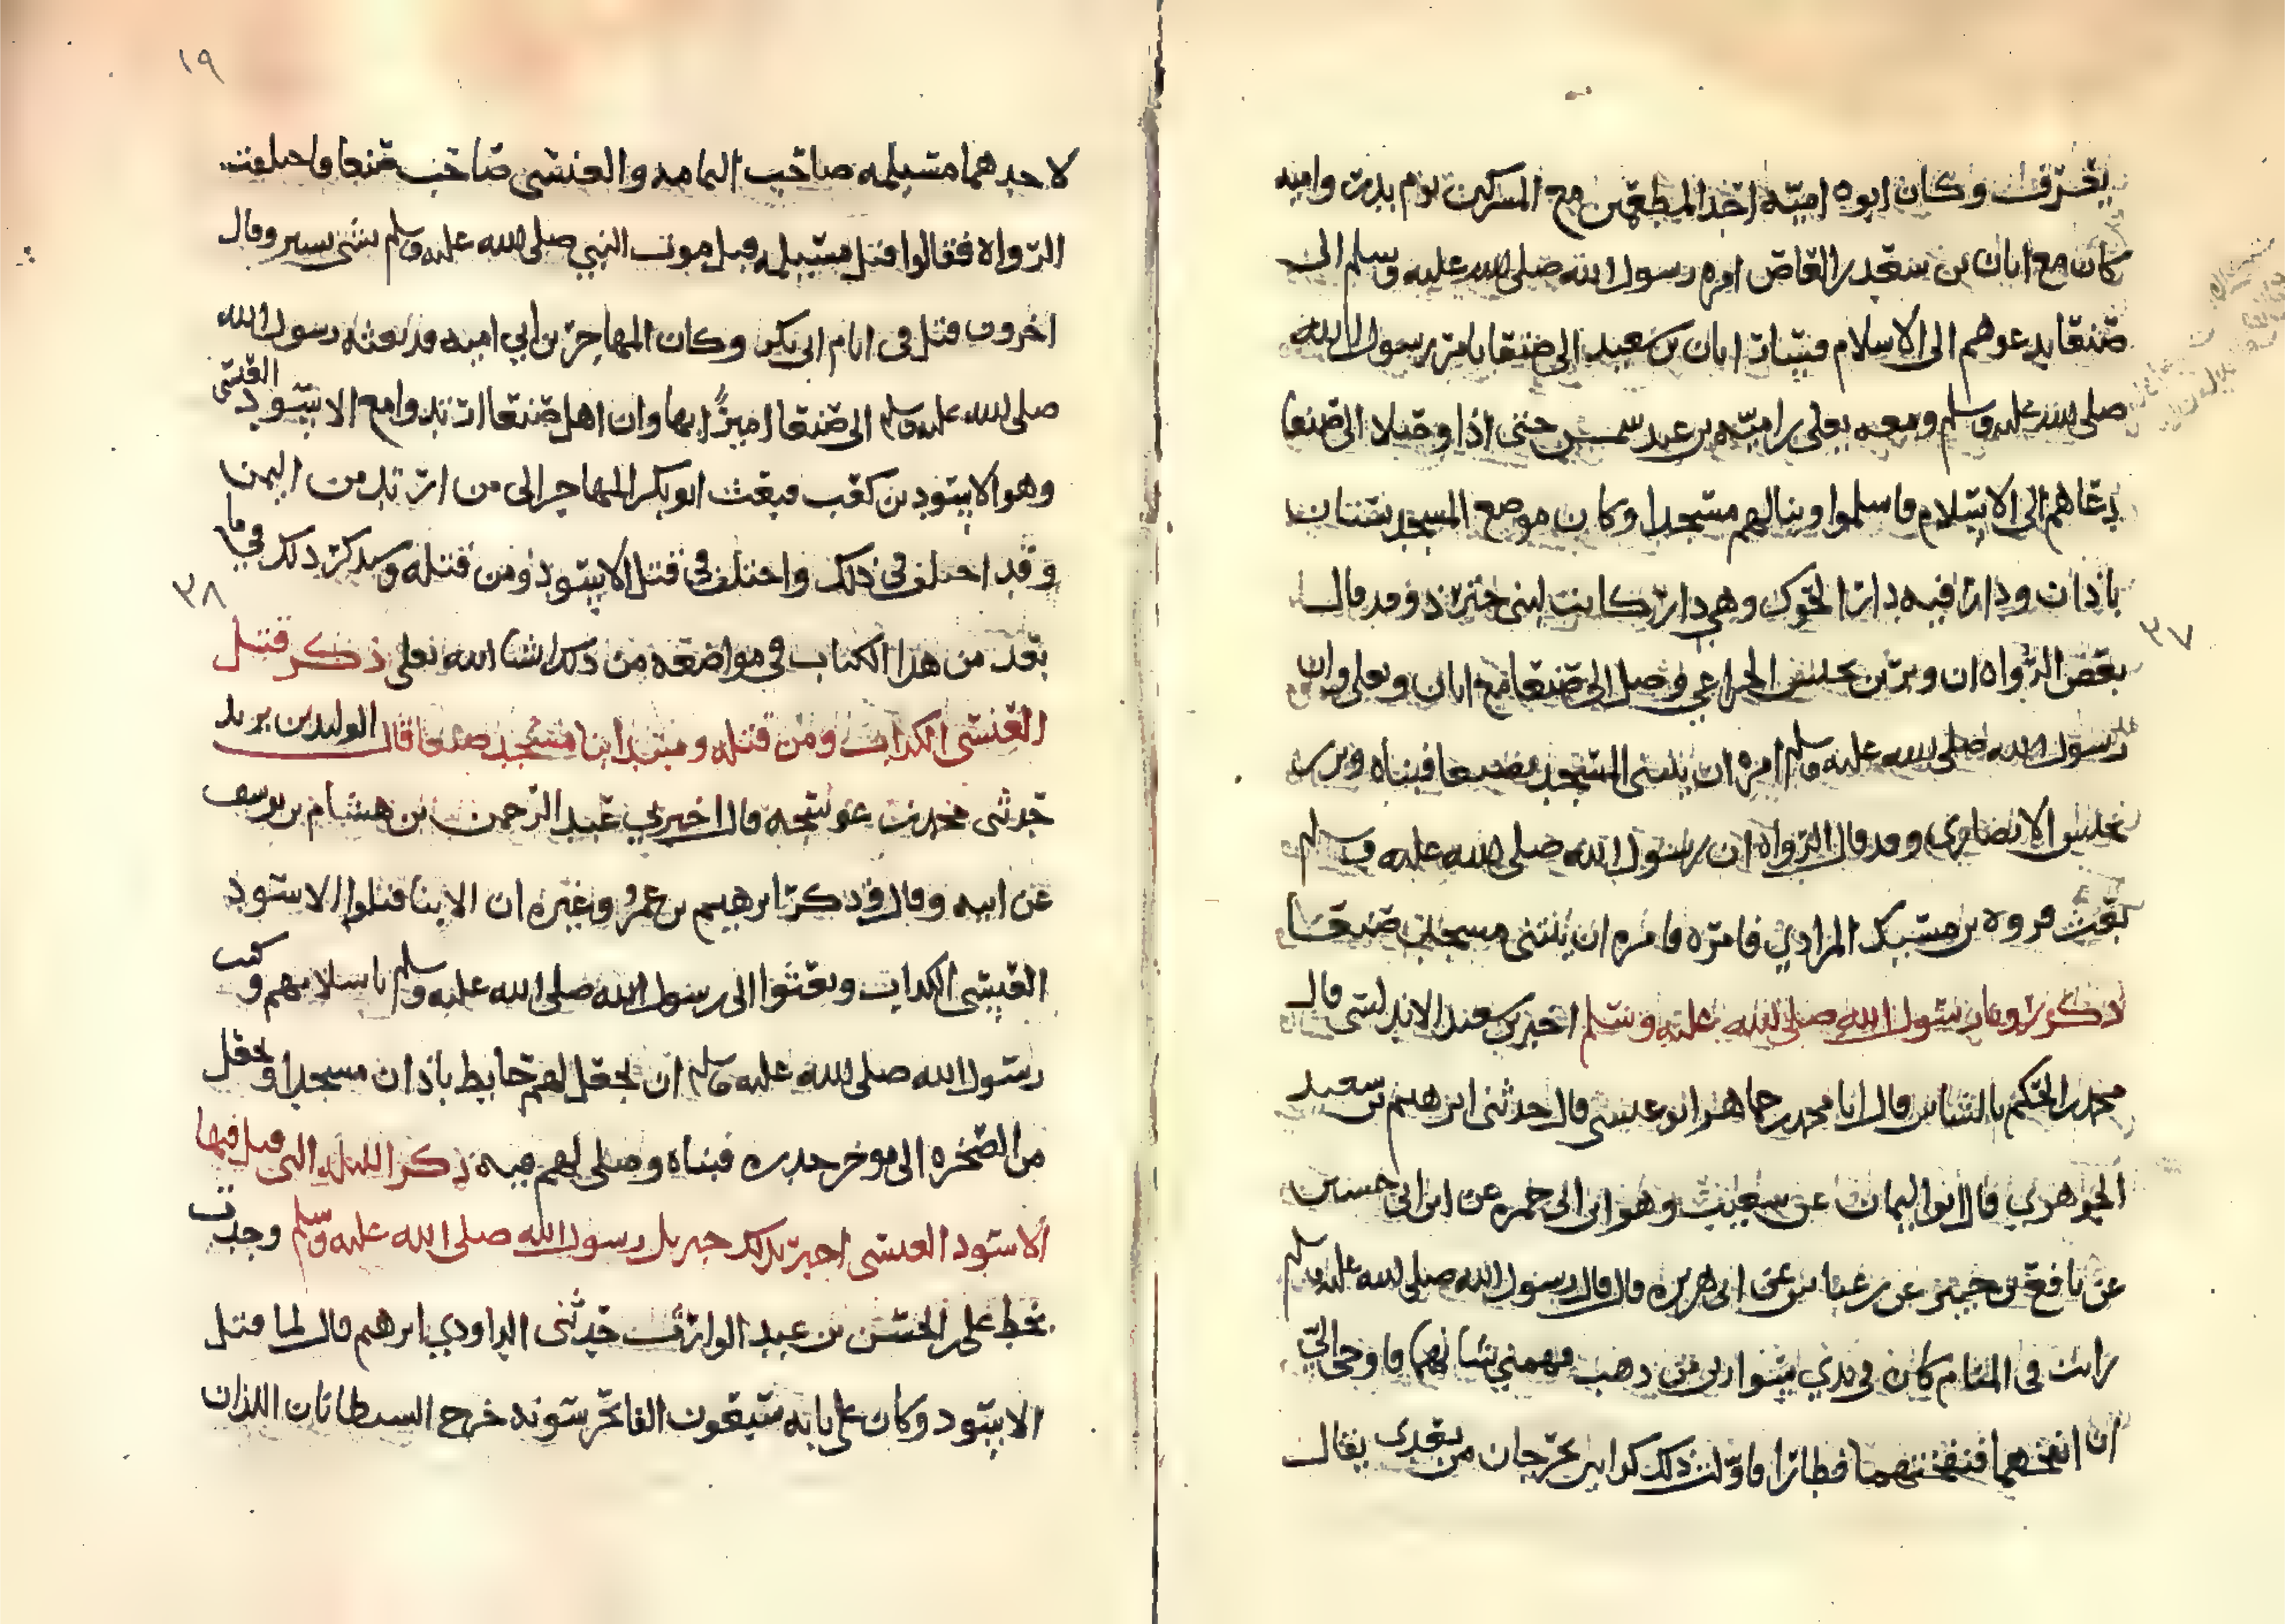 يعرف وكان ابوه اميه احد المطعمين مع المشركين يوم بدر واميه
كان مع ابان بن سعيد بن العاص امره رسول الله صلى الله عليه وسلم الى
صنعا يدعوهم الى الاسلام فسار ابان بن سعيد الى صنعا بامر رسول الله
صلى الله عليه وسلم ومعه يعلى بن اميه بن عبد شمس حتى اذا وصلا الى صنعا
دعاهم الى الاسلام فاسلموا وبنا لهم مسجدا وكان موضع المسجد بستان
باذان ودارا فيه دار الحوك وهي دار كانت لبني خنزد وقد قال
بعض الرواه ان وبر بن يحنس الخزاعي وصل الى صنعا مع ابان ويعلى وان
رسول الله صلى الله عليه وسلم امره ان يبني المسجد بصنعا فبناه وبر بن
يحنس الانصاري وقد قال الرواه ان رسول الله صلى الله عليه وسلم
بعث فروه بن مسيك المرادي فامره فامره ان يبتني مسجد صنعا
ذكر رويا رسول الله صلى الله عليه وسلم اخبر بن سعيد الاندلسي قال
محمد بن الحكم بالشاس قال انا محمد بن جماهر ابو عيسى قال حدثني ابرهيم بن سعيد
الجوهري قال ابو اليمان عن سعيب وهو ابن ابي حمزه عن ابن ابي حسين
عن نافع بن جبير عن بن عباس عن ابي هريره قال قال رسول الله صلى الله عليه وسلم
رايت في المنام كان في يدي سوارين من ذهب فهمني شانهما فاوحى الي
ان انفخهما فنفختهما فطارا فاولت ذلك كذابين يخرجان من بعدي يقال
٣٧
١٩
لاحدهما مسيلمه صاحب اليمامه والعنسي صاحب صنعا واختلفت
الرواه فقالوا قتل مسيلمه قبل موت النبي صلى الله عليه وسلم بشي يسير وقال
اخرون قتل في ايام ابي بكر وكان المهاجر بن ابي اميه قد بعثه رسول الله
صلى الله عليه وسلم الى صنعا اميرًا بها وان اهل صنعا ارتدوا مع الاسود العنسي
وهو الاسود بن كعب فبعث ابو بكر المهاجر الى من ارتد من اليمن
وقد اختلف في ذلك واختلف في قتل الاسود ومن قتله وسنذكر ذلك في ما
٣٨
بعد من هذا الكتاب في مواضعه من ذلك انشا الله تعلى ذكر قتل
العنسي الكذاب ومن قتله ومبتدا بنا مسجد صنعا قال الوليد بن يزيد
حدثني محمد بن عوسجه قال اخبرني عبد الرحمن بن هشام بن يوسف
عن ابيه وقال وذكر ابرهيم بن عمرو وغيره ان الابنا قتلوا الاسود
العنسي الكذاب وبعثوا الى رسول الله صلى الله عليه وسلم باسلامهم وكتب
رسول الله صلى الله عليه وسلم ان يجعل لهم حايط باذان مسجدا وجعل
من الصخره الى موخر جدره فبناه وصلى لهم فيه ذكر الليله التي قتل فيها
الاسود العنسي اخبر بذلك جبريل رسول الله صلى الله عليه وسلم وجدت
بخط علي بن الحسن بن عبد الوارث حدثني الداودي ابرهيم قال لما قتل
الاسود وكان على بابه سبعون الفا تحرسونه خرج السيطانان اللذان